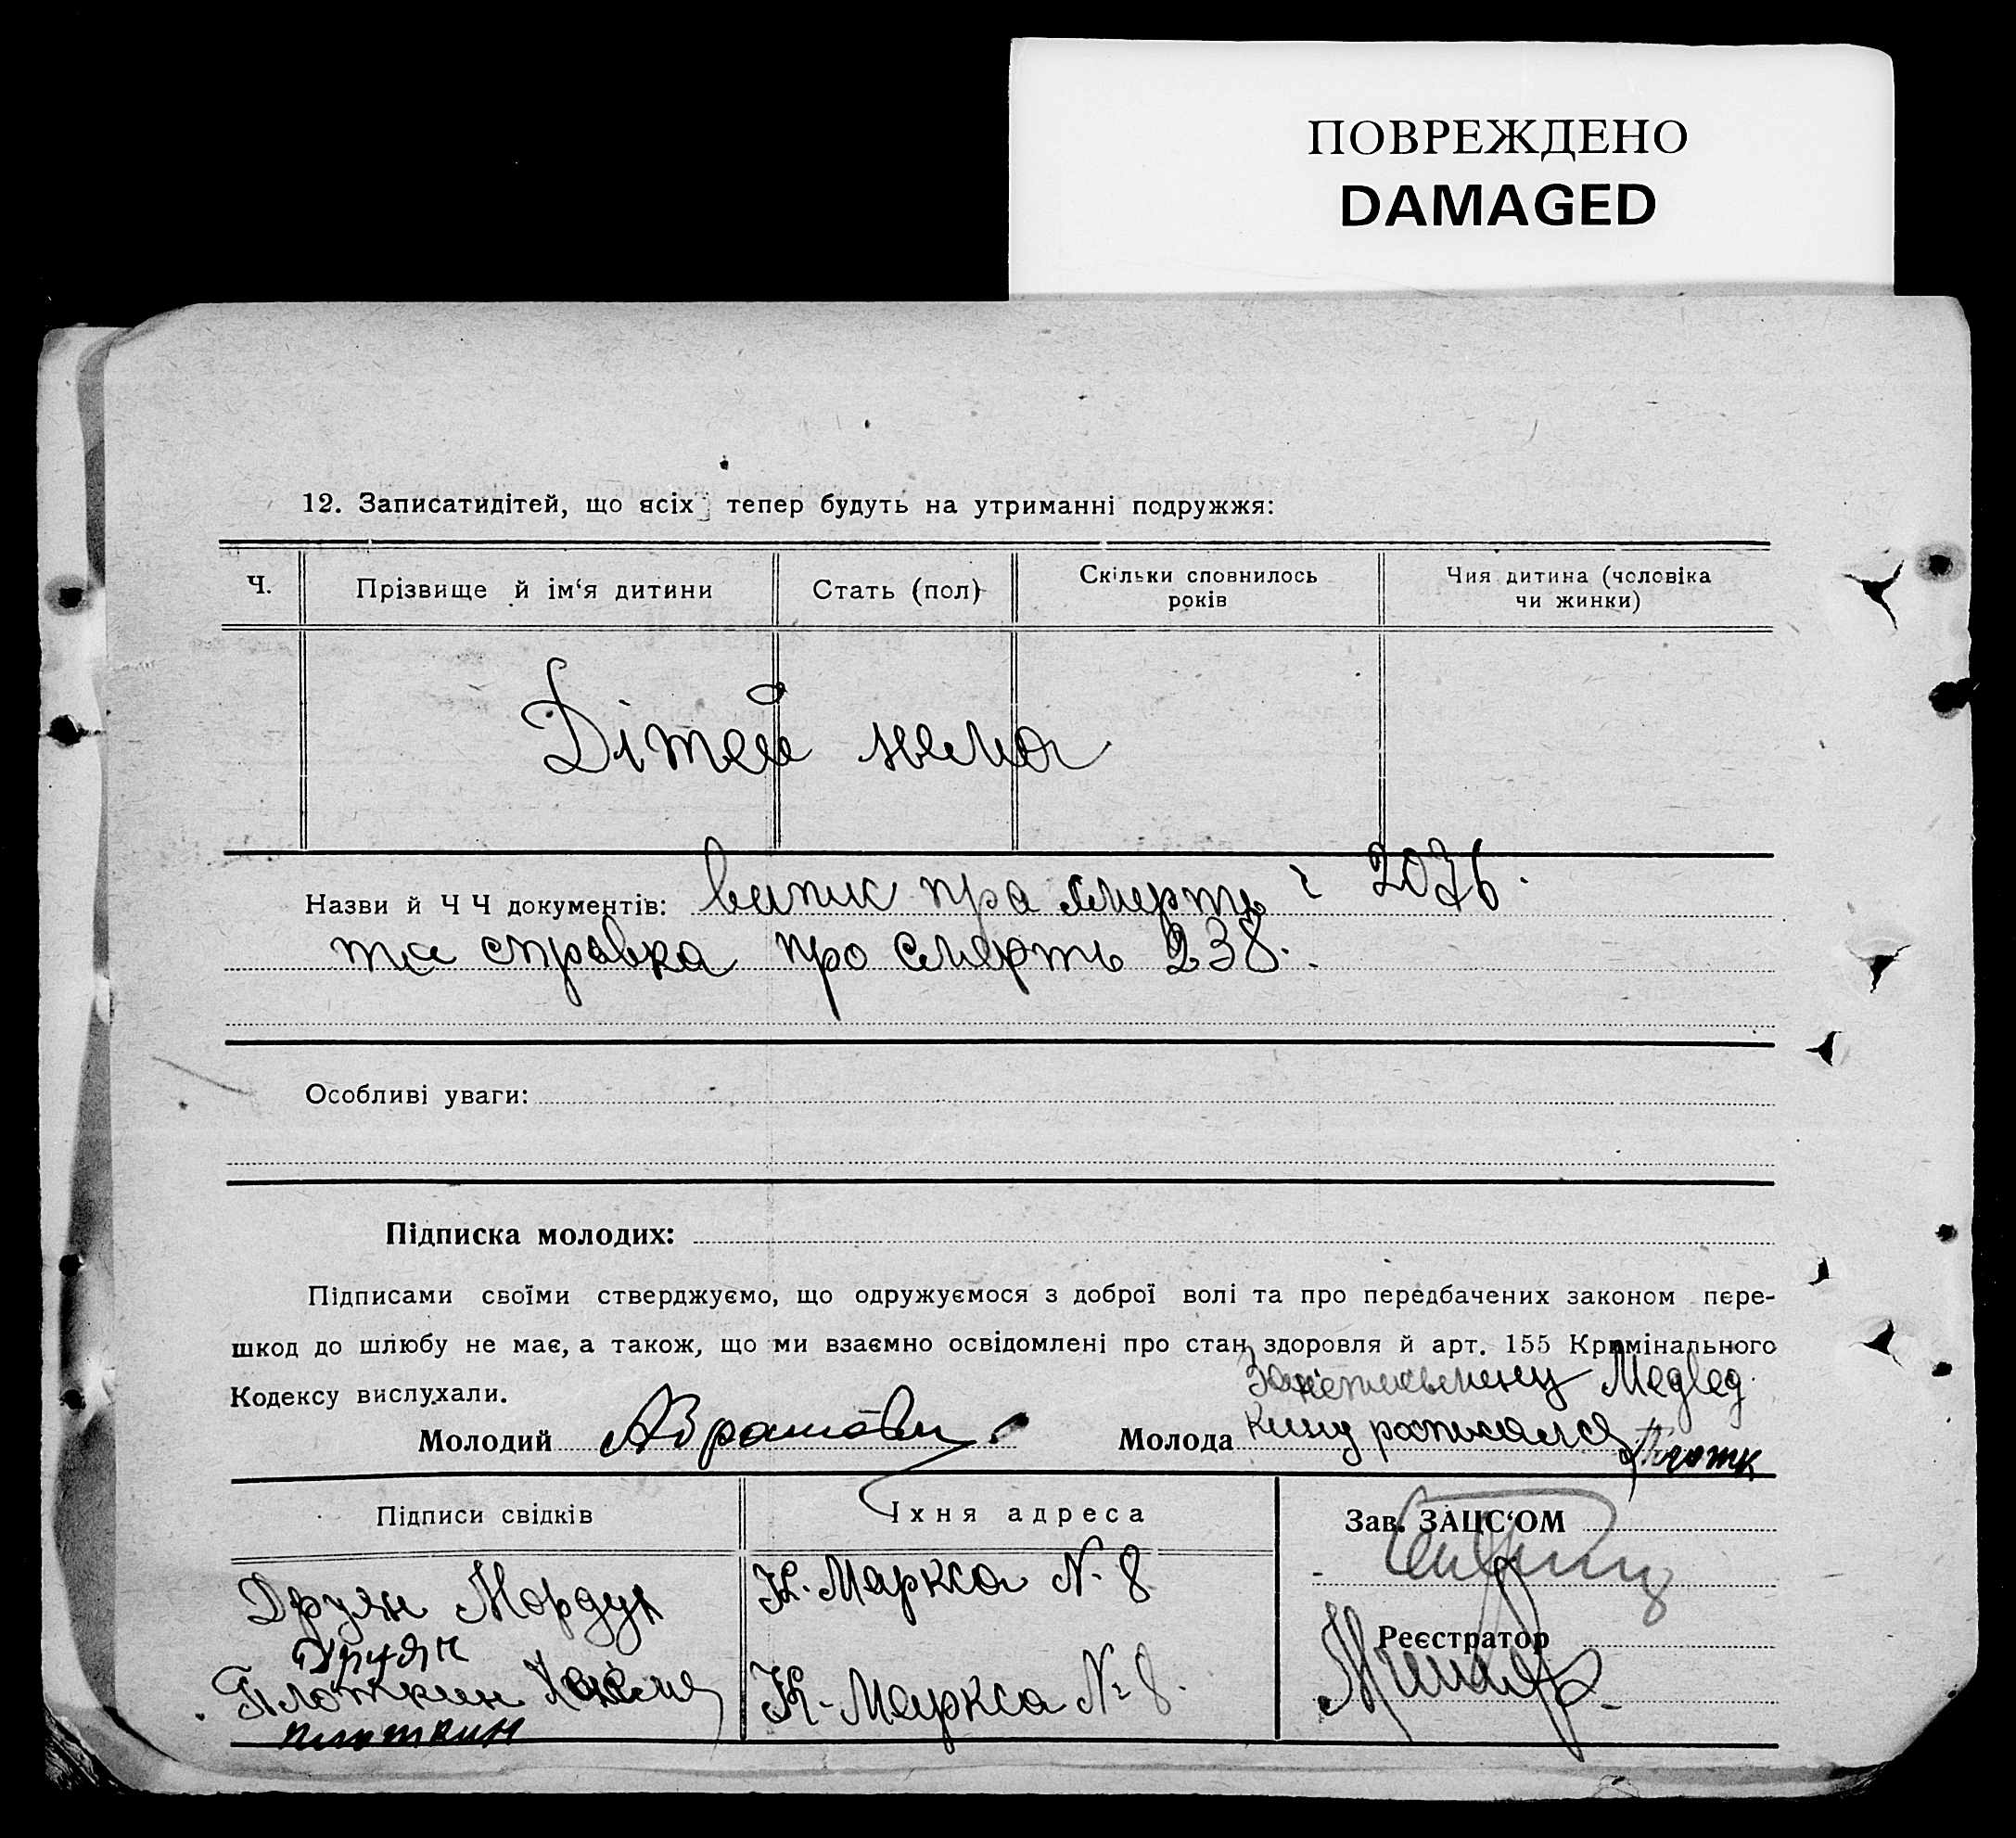 ПОВРЕЖДЕНО
DAMAGED
12. Записатидітей, що ясіх тепер будуть на утриманні подружжя:
Ч.
Прізвище й ім‘я дитини
Стать (пол)
Скільки сповнилось
років
Чия дитина (чоловіка
чи жинки)
Дітей нема
Назви й Ч Ч документів: випис про смерть ч 2076.
та справка про смерть 238.
Особливі уваги:
Підписка молодих:
Підписами своїми стверджуємо, що одружуємося з доброї волі та про передбачених законом пере-
шкод до шлюбу не має, а також, що ми взаємно освідомлені про стан здоровля й арт. 155 Кримінального
Кодексу вислухали.
За Медвед
Молодий Молода кину росписался
Підписи свідків
Їхня адреса
Зав. ЗАЦС‘ОМ
Друян Мордух
К. Маркса N. 8
Друян
Реєстратор
Плоткин
К. Маркса № 8.
плоткин